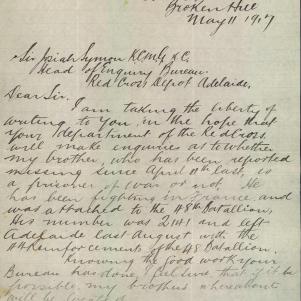 Broken Hill
May 11 1917
Sir Josiah Symon K.C.M.G. K.C.
Head of Enquiry Bureau.
Red Cross Depot Adelaide.
Dear Sir.
I am taking the liberty of
writing to you in the hope that
your department of the Red Cross.
will make inquiries as to whether
my brother, who has been reported
missing since April 11th last, is
a prisoner of war or not. He
has been fighting in France, and
was attached to the 48th Battallion,
His number was and left
Adelaide last August with the
Reinforcements of the Battalion.
Knowing the good work your
Bureau has done, I feel sure, that if it be
possible my brothers whereabout
will be